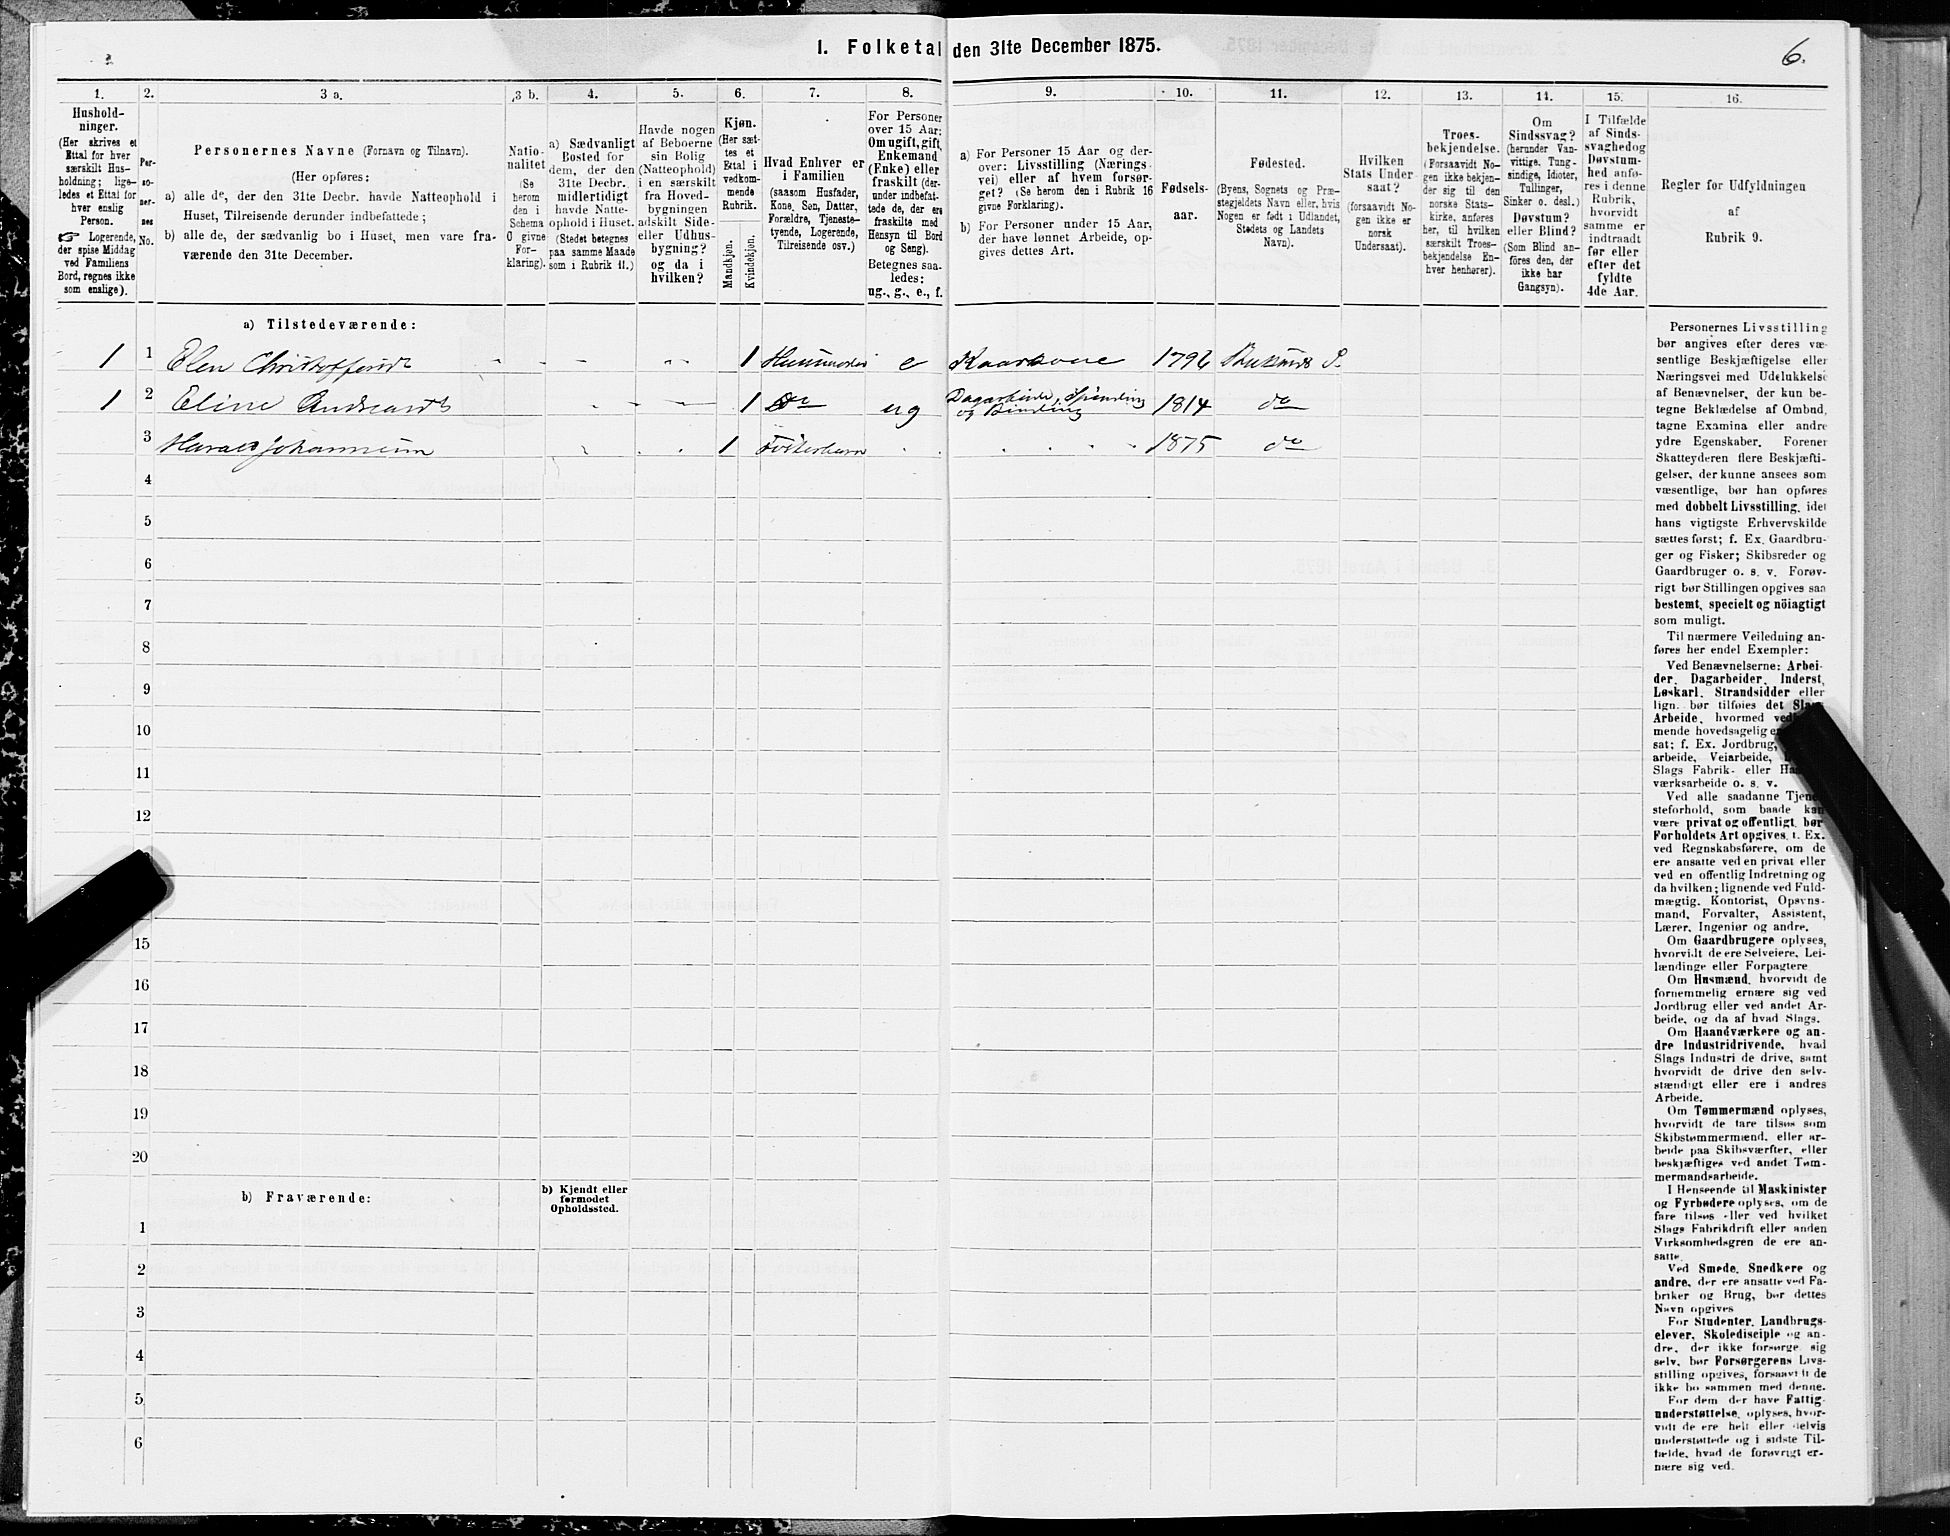 1. Folketal den 31te December 1875.
6.
1.
Hushold-
ninger.
(Her skrives et
Ettal for hver
særskilt Hus-
holdning; lige-
ledes et Ettal for
hver enslig
Person.
☞ Logerende,
der spise Middag
ved Familiens
Bord, regnes ikke
som enslige).
2.
Per-
so-
ner-
nes
No.
3 a.
Personernes Navne (Fornavn og Tilnavn).
(Her opføres:
a) alle de, der den 31te Decbr. havde Natteophold i
Huset, Tilreisende derunder indbefattede;
b) alle de, der sædvanlig bo i Huset, men vare fra-
værende den 31te December.
3 b.
Natio-
nalitet
(Se
herom
den i
Schema
O givne
For-
klaring).
4.
a) Sædvanligt
Bosted for
dem, der den
31te Decbr.
midlertidigt
havde Natte-
ophold i Huset.
(Stedet betegnes
paa samme Maade
som i Rubrik 11.)
5.
Havde nogen
af Beboerne
sin Bolig
(Natteophold)
i en særskilt
fra Hoved-
bygningen
adskilt Side-
eller Udhus-
bygning?
og da i
hvilken?
6.
Kjøn.
(Her sæt-
tes et
Ettal i
vedkom-
mende
Rubrik.
Mandkjøn.
Kvindekjøn.
7.
Hvad Enhver er
i Familien
(saasom Husfader,
Kone, Søn, Datter,
Forældre, Tjeneste-
tyende, Logerende,
Tilreisende osv.)
8.
For Personer
over 15 Aar:
Om ugift, gift,
Enkemand
(Enke) eller
fraskilt (der-
under indbefat-
tede de, der ere
fraskilte med
Hensyn til Bord
og Seng).
Betegnes saa-
ledes:
ug., g., e., f.
9.
a) For Personer 15 Aar og der-
over: Livsstilling (Nærings-
vei) eller af hvem forsør-
get? (Se herom den i Rubrik 16
givne Forklaring).
b) For Personer under 15 Aar,
der have lønnet Arbeide, op-
gives dettes Art.
10.
Fødsels-
aar.
11.
Fødested.
(Byens, Sognets og Præ-
stegjeldets Navn eller, hvis
Nogen er født i Udlandet,
Stedets og Landets
Navn).
12.
Hvilken
Stats Under
saat?
(forsaavidt No-
gen ikke er
norsk
Undersaat).
13.
Troes-
bekjendelse.
(Forsaavidt No-
gen ikke bekjen-
der sig til den
norske Stats-
kirke, anføres
her, til hvilken
særskilt Troes-
bekjendelse En-
hver henhører).
14.
Om
Sindssvag?
(herunder Van-
vittige, Tung-
sindige, Idioter,
Tullinger,
Sinker o. desl.)
Døvstum?
eller Blind?
(Som Blind an-
føres den, der
ikke har
Gangsyn).
15.
I Tilfælde
af Sinds-
svaghed og
Døvstum-
hed anfø-
res i denne
Rubrik,
hvorvidt
samme er
indtraadt
før eller
efter det
fyldte
4de Aar.
16.
Regler for Udfyldningen
af
Rubrik 9.
a) Tilstedeværende:
1 1 Elen 1 e 1796
1 2 Eline 1 Do ug Dagarbeide, Spinding
og Binding 1814 do
3 1 Fosterbarn 1875 do
4
5
6
7
8
9
10
11
12
15
16
17
18
19
20
b) Fraværende:
b) Kjendt eller
formodet
Opholdssted.
1
2
3
4
5
6
Personernes Livsstilling
bør angives efter deres væ-
sentlige Beskjæftigelse eller
Næringsvei med Udelukkelse
af Benævnelser, der kun be-
tegne Beklædelse af Ombud,
tagne Examina eller andre
ydre Egenskaber. Forener
Skatteyderen flere Beskjæfti-
gelser, der kunne ansees som
væsentlige, bør han opføres
med dobbelt Livsstilling, idet
hans vigtigste Erhvervskilde
sættes først; f. Ex. Gaardbru-
ger og Fisker; Skibsreder og
Gaardbruger o. s. v. Forøv-
rigt bør Stillingen opgives saa
bestemt, specielt og nöiagtigt
som muligt.
Til nærmere Veiledning an-
føres her endel Exempler:
Ved Benævnelserne: Arbei-
der, Dagarbeider, Inderst,
Løskarl, Strandsidder eller
lign. bør tilføies det Slags
Arbeide, hvormed
mende hovedsagelig
sat; f. Ex. Jordbrug,
arbeide, Veiarbeide,
Slags Fabrik- eller
værksarbeide o. s. v.
Ved alle saadanne Tjene-
steforhold, som baade kan
være privat og offentligt, bør
Forholdets Art opgives, f. Ex.
ved Regnskabsførere, om de
ere ansatte ved en privat eller
ved en offentlig Indretning og
da hvilken; lignende ved Fuld-
mægtig, Kontorist, Opsyns-
mand, Forvalter, Assistent,
Lærer, Ingeniør og andre.
Om Gaardbrugere oplyses,
hvorvidt de ere Selveiere, Lei-
lændinge eller Forpagtere
Om Husmænd, hvorvidt de
fornemmelig ernære sig ved
Jordbrug eller ved andet Ar-
beide, og da af hvad Slags.
Om Haandværkere og an-
dre Industridrivende, hvad
Slags Industri de drive, samt
hvorvidt de drive den selv-
stændigt eller ere i andres
Arbeide.
Om Tømmermænd oplyses,
hvorvidt de fare tilsøs som
Skibstømmermænd, eller ar-
beide paa Skibsværfter, eller
beskjæftiges ved andet Tøm-
mermandsarbeide.
I Henseende til Maskinister
og Fyrbødere oplyses, om de
fare tilsøs eller ved hvilket
Slags Fabrikdrift eller anden
Virksomhedsgren de ere an-
satte.
Ved Smede, Snedkere og
andre, der ere ansatte ved Fa-
briker og Brug, bør dettes
Navn opgives
For Studenter, Landbrugs-
elever, Skoledisciple og an-
dre, der ikke forsørge sig
selv, bør Forsørgerens Livs-
stilling opgives, forsaavidt de
ikke bo sammen med denne.
For dem der have Fattig-
understøttelse, oplyses, hvor-
vidt de ere helt eller delvis
understøttede og i sidste Til-
fælde, hvad de forøvrigt er-
nære sig ved.